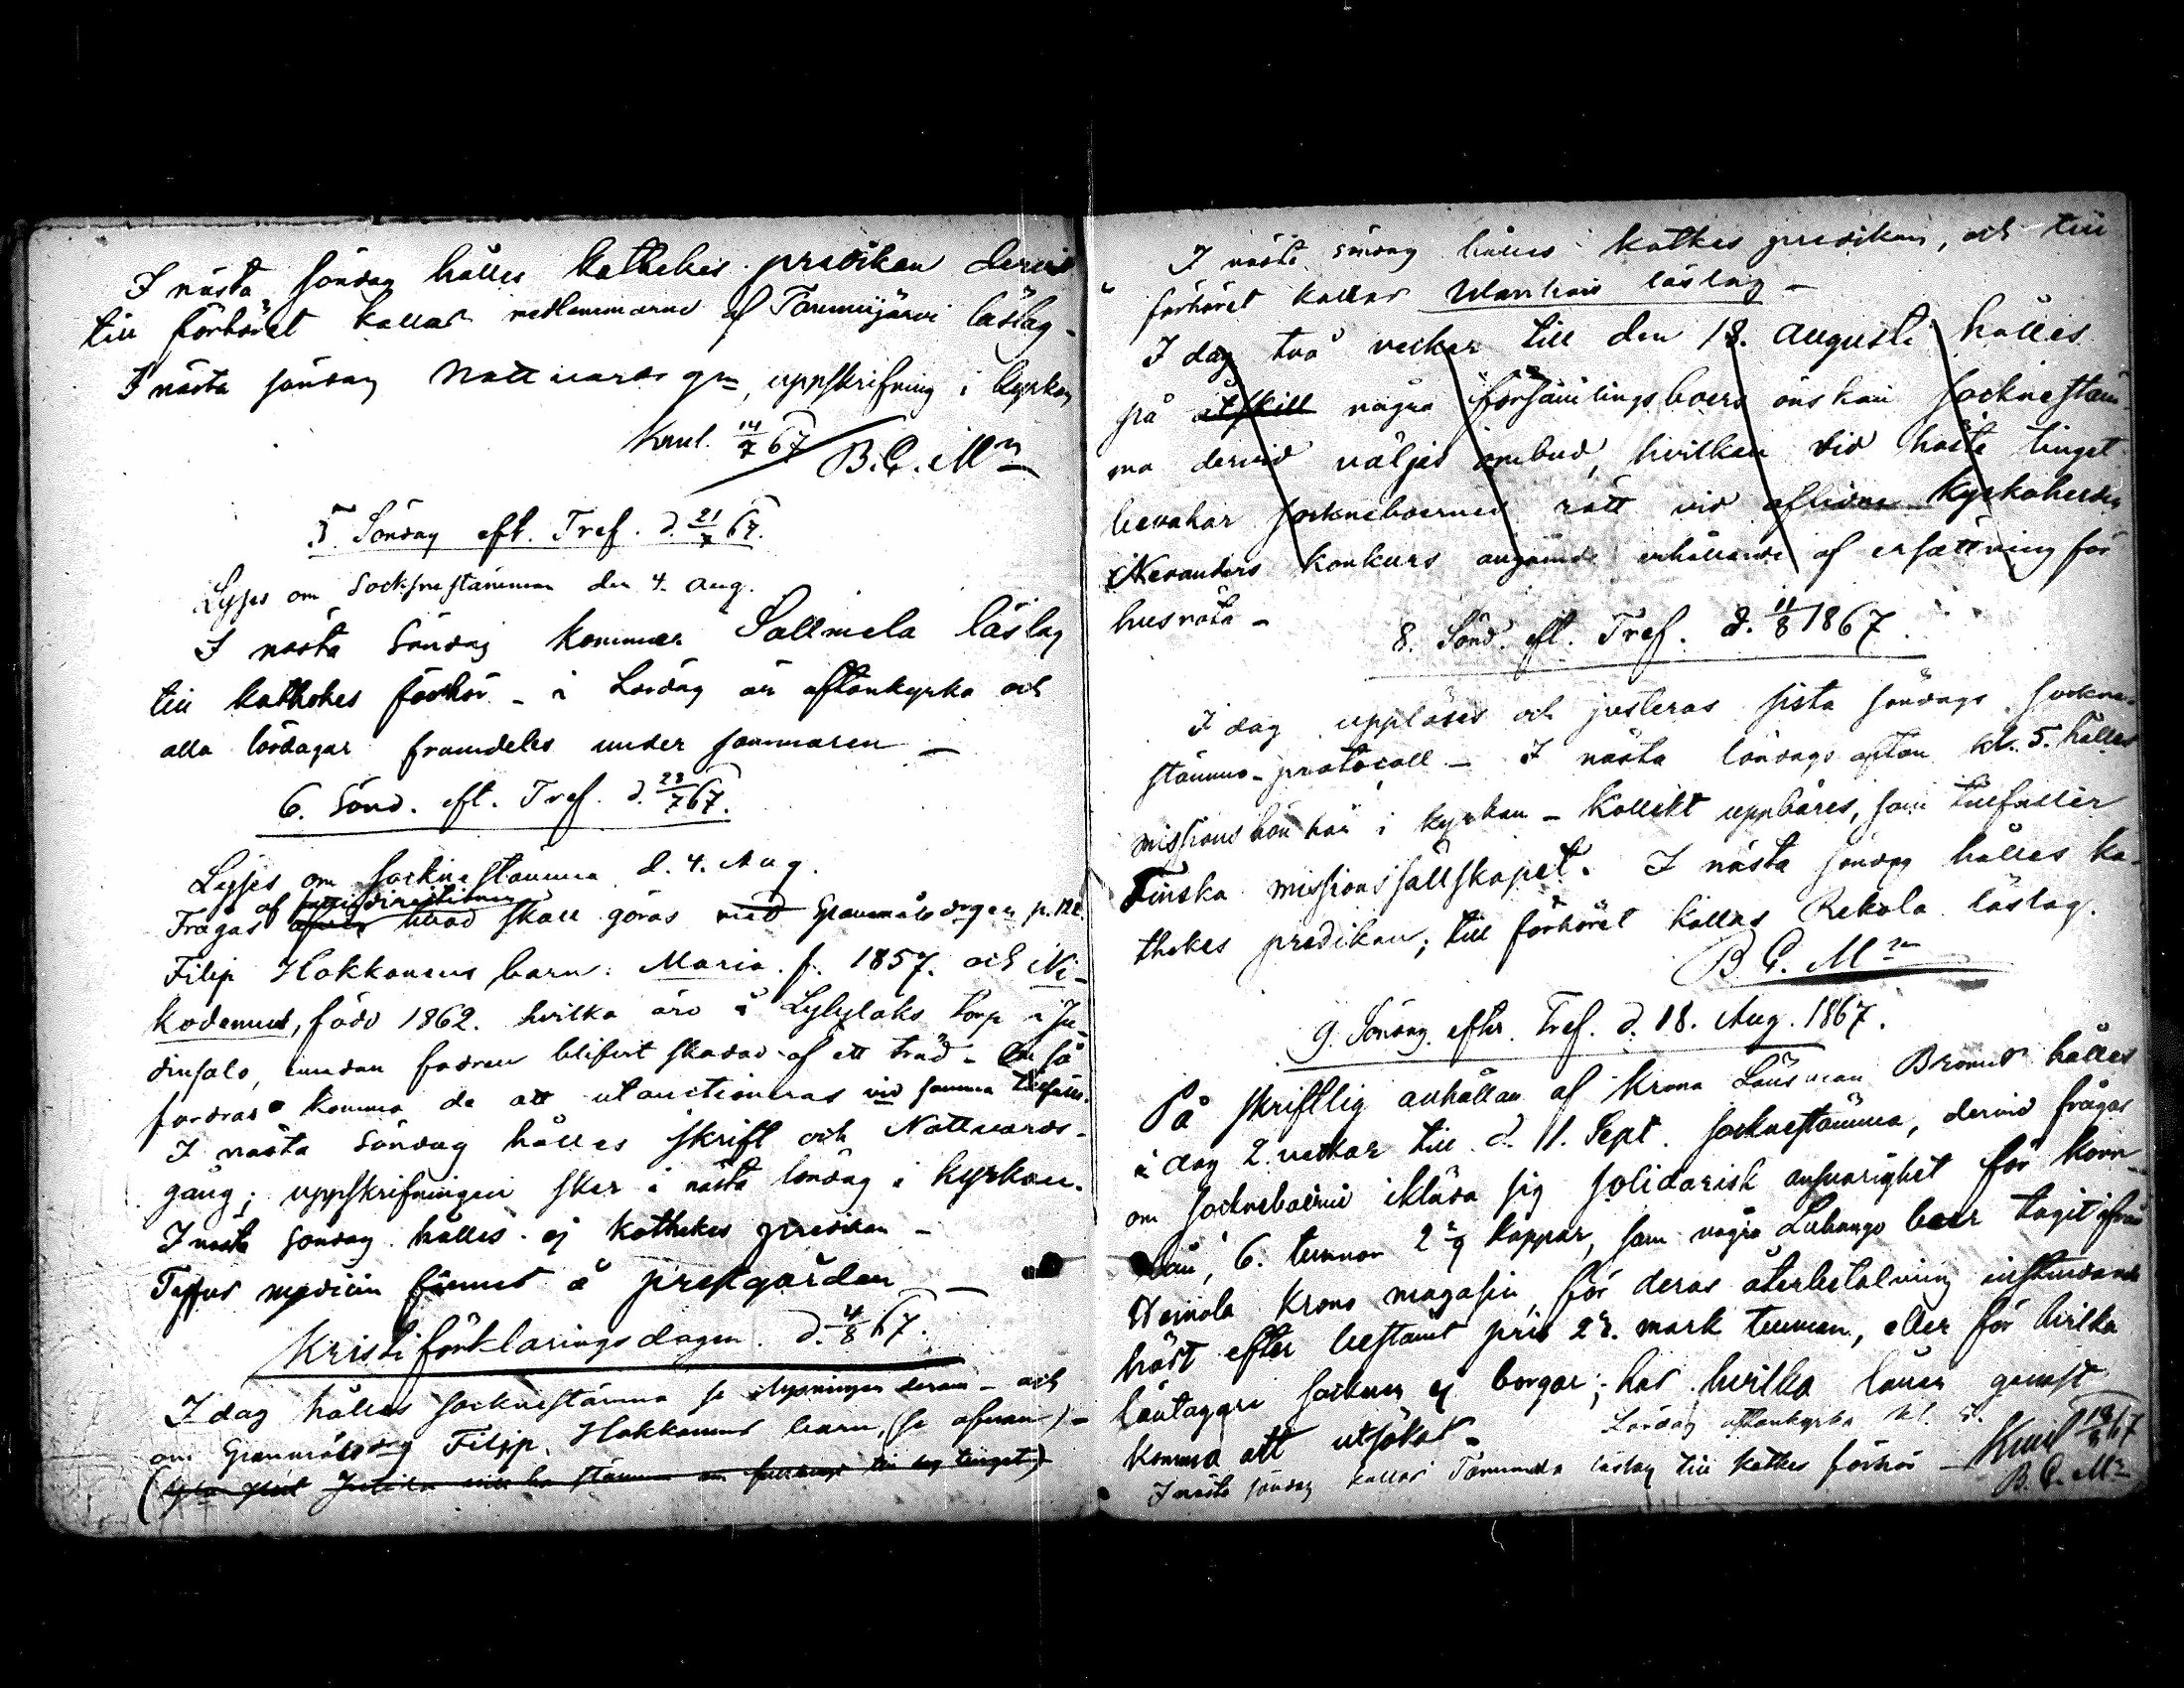 I nästa söndag hålles kathekes predikan dervid
till förhöret kallas medlemmarne af Tommijärvi läslag -
I nästa söndag Nattvards gng, uppskrifning i kyrkan
Kunl. 14/7 67 B.C. Mn
5. Söndag eft. Tref. d. 21/7 67.
Lyses om Socknestämman den 4. Aug.
I nästa Söndag kommer Sallmela läslag
till kathekes förhör - i Lördag är aftonkyrka och
alla lördagar framdeles under sommaren -
6. Sönd. eft. Tref. d. 28/7 67.
Lyses om Socknestämma d. 4. Aug.
Frågas af hvad skall göras med Spanmåls
Filip Hokkanens barn: Maria f. 1857. och Ni-
kodemus, född 1862. hvilka äro å Lylylaks torp i Ju-
dinsalo, sundan fadren blifvit skadad af ett träd - Om så
fordras komma de att utauctioneras vid samma tillfälle.
I nästa Söndag hålles skrift och Nattvards-
gång; uppskrifningen sker i nästa lördag i kyrkan.
I nästa Söndag hålles ej kathekes predikan -
Tyfus medicin finnes å prestgården -
Kristi förklarings dagen d. 4/8 67.
I dag hålles Socknestämma se lysningen derom - och
om Filip Hokkanens barn, (se ofvan) -
I nästa söndag hålles kathes predikan, och till
förhöret kallas läslag -
I dag två veckor till den 18. Augusti hålles
på åtskill några församlingsboers önskan Sockneståm-
ma dervid väljes ombud, hvilken vid häste tinget
bevakar Sockneboernes rätt vid aflidne Kyrkoherden
Nevanders konkurs angående erhållande af ersättning för
husröta -
8. Sönd. eft. Tref. d. 11/8 1867.
I dag uppläses och justeras sista söndags Sockne-
stämmo-protocoll - I nästa lördags afton kl. 5. hålles
missions bön här i kyrkan - Kollekt uppbäres, som tillfaller
Finska missions sällskapet. I nästa söndag hålles ka-
thekes predikan; till förhöret kallas Rekola läslag.
B C. Mn
9. Söndag efter Tref. d. 18. Aug. 1867.
På skriftlig anhållan af Krono Länsman Bromd hålles
i dag 2. veckor till d. 1. Sept. Socknestämma, dervid frågas
om sockneboerne ikläda sig solidarisk ansvarighet för korn
lån, 6. tunnor 2 2/9 kappar, som några Luhango boer tagit ifrån
Heinola Krono magasin, för deras återbetalning instundande
höst efter bestämt pris 22. mark tunnan, eller för hvilka
låntagare socknen ej borgar; hos hvilka lånen genast
komma att utsökas. Lördag aftonkyrka kl. 5.
I nästa söndag kallas läslag till kathes förhör - Kunl 18/8 67
B. C. Mn